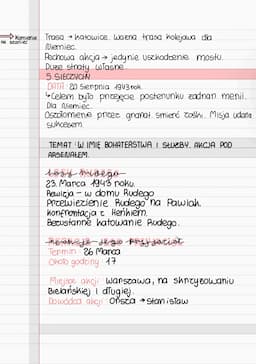 Kamienie na szaniec
Trasa → Katowice. Ważna trasa kolejowa dla
Niemiec.
Pechowa akcja → jedynie uszkodzenie mostu.
Duże straty własne.
5. SIECZYCHY
DATA: 20 Sierpnia 1943 rok.
↳ Celem było przejęcie posterunku żandarmerii.
Dla Niemiec.
Oszołomienie przez granat. Śmierć Zośki. Misja udana
sukcesem.
TEMAT: W IMIĘ BOHATERSTWA I SŁUŻBY. AKCJA POD
ARSENAŁEM.
Losy Rudego
23. Marca 1943 roku.
Rewizja - w domu Rudego
Przewiezienie Rudego na Pawiak.
Konfrontacja z Heńkiem.
Bezustanne katowanie Rudego.
Reakcje jego przyjaciół
Termin: 26 Marca
Około godziny 17
Miejsce akcji: Warszawa, na skrzyżowaniu
Bielańskiej i długiej.
Dowódca akcji: Orsza → Stanisław